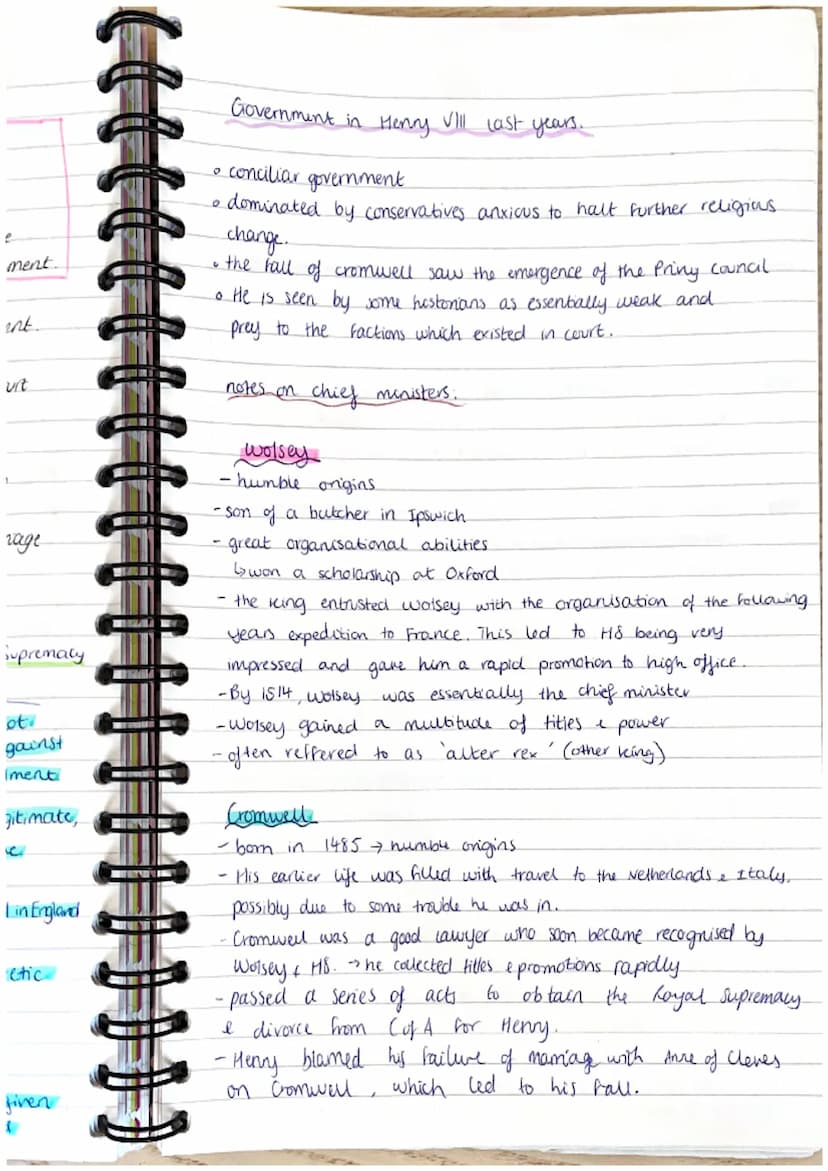 Government in Henry VIII last years.
◦ conciliar government
◦ dominated by conservatives anxious to halt further religious
change.
• the fall of cromwell saw the emergence of the Privy Council
◦ He is seen by some historians as essentially weak and
prey to the factions which existed in court.
notes on chief ministers:
Wolsey
- humble origins
- son of a butcher in Ipswich
- great organisational abilities
↳ won a scholarship at Oxford
- the king entrusted Wolsey with the organisation of the following
years expedition to France. This led to H8 being very
impressed and gave him a rapid promotion to high office.
- By 1514, Wolsey was essentially the chief minister
- Wolsey gained a multitude of titles & power
- often reffered to as 'alter rex' (other king)
Cromwell
- born in 1485 → humble origins
- His earlier life was filled with travel to the Netherlands & Italy,
possibly due to some trouble he was in.
- Cromwell was a good lawyer who soon became recognised by
Wolsey & H8. → he collected titles & promotions rapidly
- passed a series of acts to obtain the Royal Supremacy
& divorce from C of A for Henry.
- Henry blamed his failure of marriage with Anne of Cleves
on Cromwell, which led to his fall.
ment.
ent.
urt
Supremacy
ot
gainst
ment
gitimate,
in England
etic
given